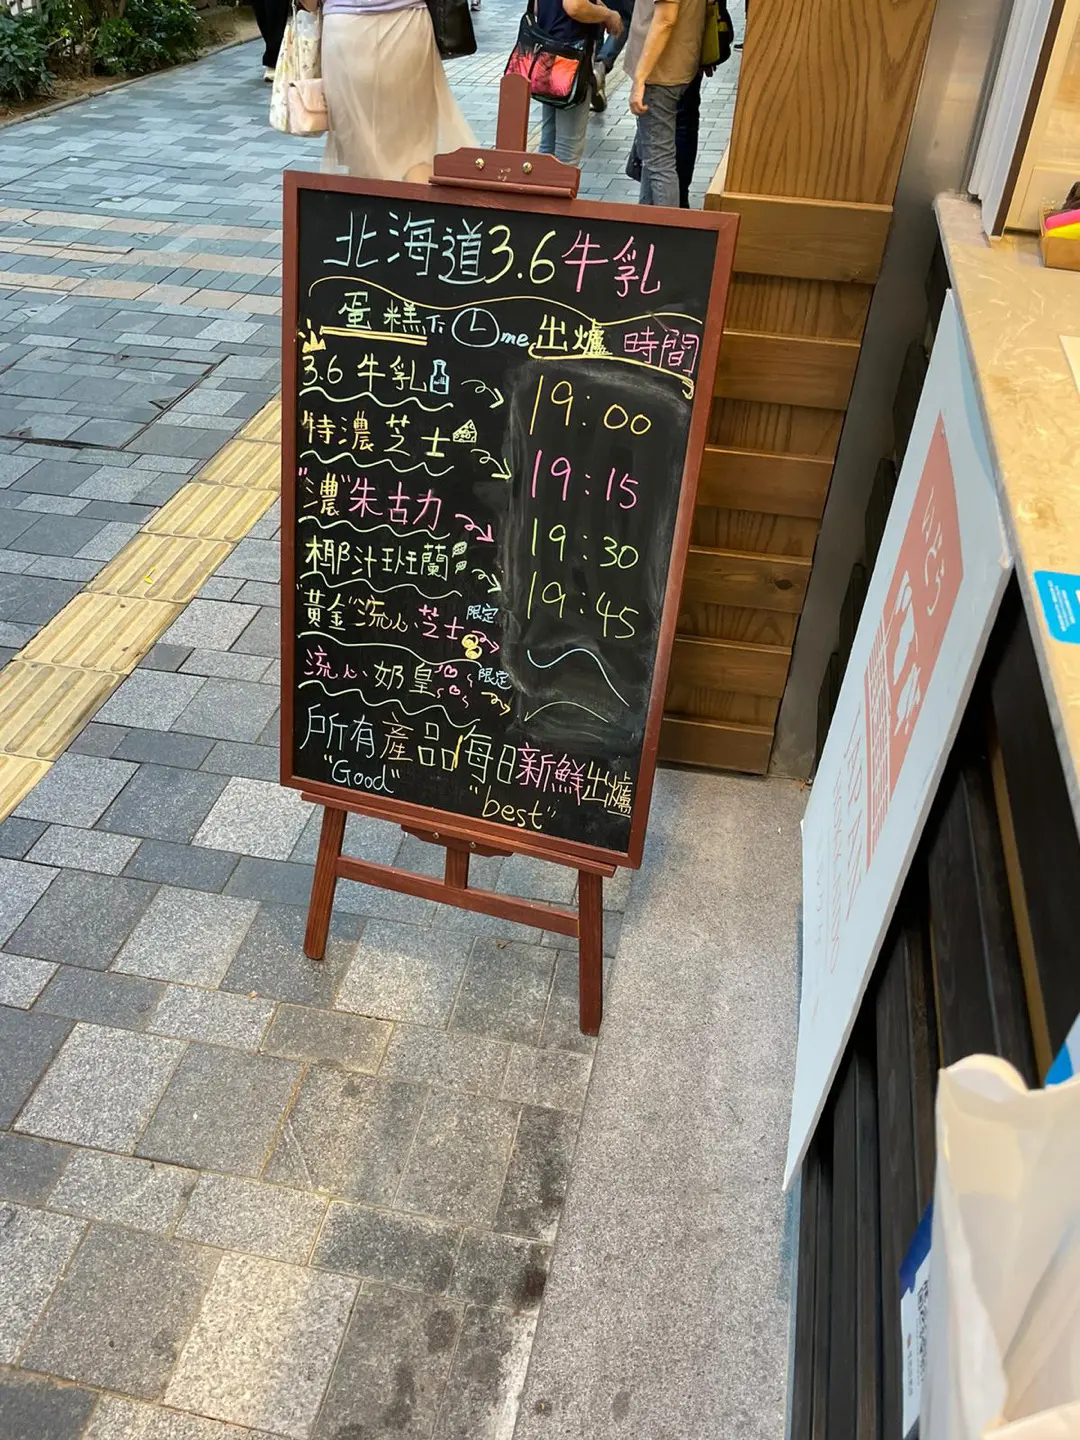 北海道3.6牛乳
蛋糕下 me 出爐 時間
3.6牛乳 19:00
特濃芝士 19:15
"濃"朱古力 19:30
椰汁班蘭 19:45
"黃金"流心芝士 限定
流心奶皇 限定
所有產品每日新鮮出爐
"Good" "best"